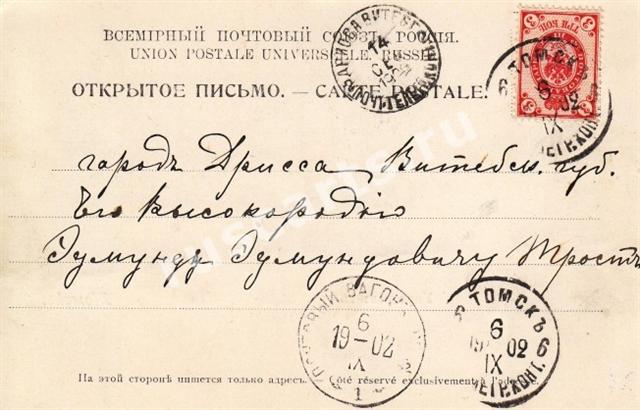 ВСЕМІРНЫЙ ПОЧТОВЫЙ СОЮЗЪ. РОССІЯ.
UNION POSTALE UNIVERSELLE. RUSSIE.
ОТКРЫТОЕ ПИСЬМО. — CARTE POSTALE.
14
ТОМСКЪ
6
6
02
IX
ПЕТР.КОНТ.
3
3
городъ Дрисса, Витебск. губ.
Его Высокородію
Эдмунду Эдмундовичу Тростъ
ПОЧТОВЫЙ ВАГОНЪ
6
19-02
IX
1
ТОМСКЪ
6
6
19 02
IX
6
ПЕТР.КОНТ.
На этой сторонѣ пишется только адресъ. — Côté réservé exclusivement à l'adresse.